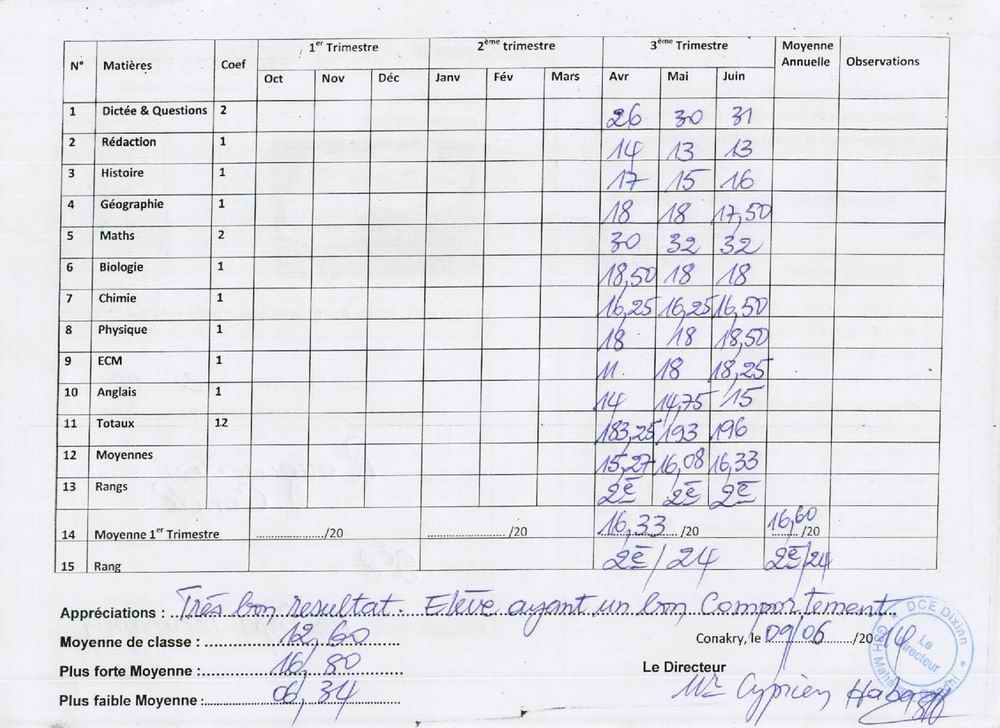 N° Matières Coef 1er Trimestre 2ème trimestre 3ème Trimestre Moyenne Annuelle Observations
Oct Nov Déc Janv Fév Mars Avr Mai Juin
1 Dictée & Questions 2 26 30 31
2 Rédaction 1 14 13 13
3 Histoire 1 17 15 16
4 Géographie 1 18 18 17,50
5 Maths 2 30 32 32
6 Biologie 1 18,50 18 18
7 Chimie 1 16,25 16,25 16,50
8 Physique 1 18 18 18,50
9 ECM 1 11. 18 18,25
10 Anglais 1 14 14,75 15
11 Totaux 12 183,25 193 196
12 Moyennes 15,27 16,08 16,33
13 Rangs 2è 2è 2è
14 Moyenne 1er Trimestre ..................../20 ..................../20 16,33 /20 16,60 /20
15 Rang 2è/24 2è/24
Appréciations : Très bon resultat. Elève ayant un bon Comportement
Moyenne de classe : 12,60
Conakry, le 09/06 /2014
Plus forte Moyenne : 16,80
Le Directeur
Plus faible Moyenne : 06,34
Mr Cyprien
DCE Dixinn
Le Directeur